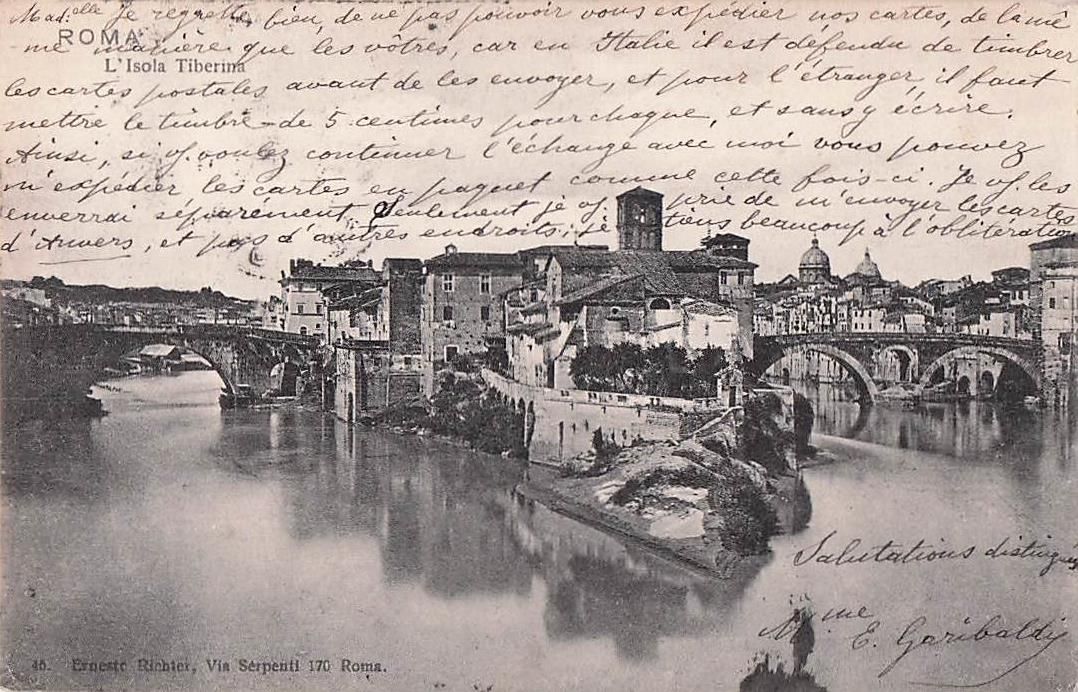 Mad.elle Je regrette, bien, de ne pas pouvoir vous expédier nos cartes, de la mê
ROMA
me manière que les vôtres, car en Italie il est défendu de timbrer
L'Isola Tiberina
les cartes postales avant de les envoyer, et pour l'étranger il faut
mettre le timbre de 5 centimes pour chaque, et sans y écrire.
Ainsi, si v/. voulez continuer l'échange avec moi vous pouvez
m'expédier les cartes en paquet comme cette fois-ci. Je v/. les
enverrai séparément. Seulement je v/. prie de m'envoyer les cartes
d'Anvers, et pas d'autres endroits; je tiens beaucoup à l'oblitération
Salutations distinguées
Mme
E. Garibaldi
46. Ernesto Richter, Via Serpenti 170 Roma.